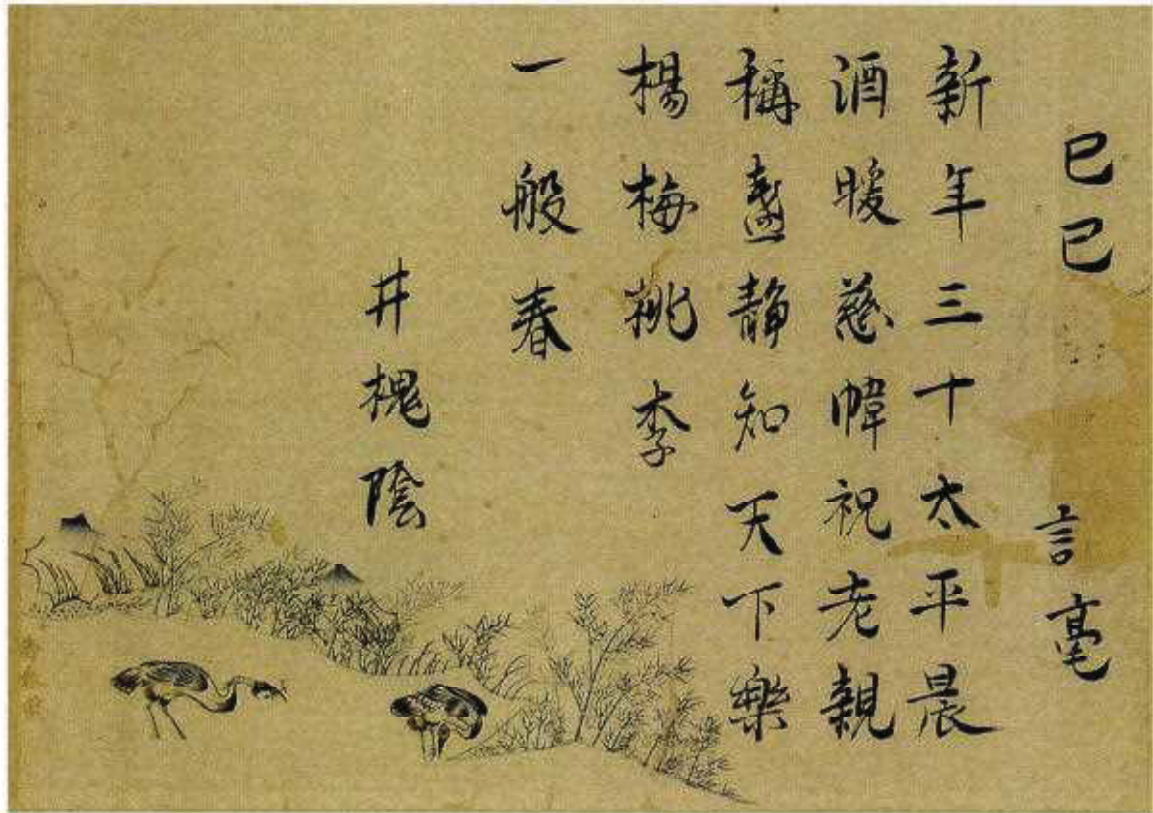 己巳 言毫
新年三十太平晨
酒暖慈幃祝老親
稱靜知天下樂
楊梅桃李
一般春
井槐陰